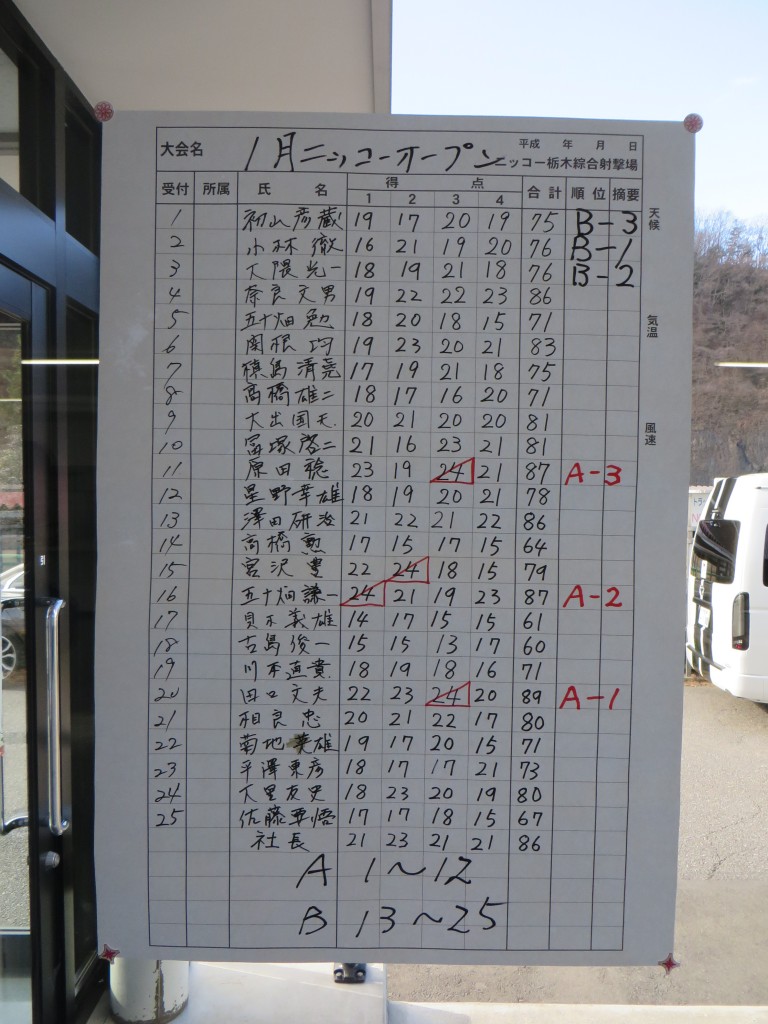 大会名 1月ニッコーオープン 平成 年 月 日
ニッコー栃木綜合射撃場
受付 所属 氏 名 得 点 合計 順位 摘要
1 2 3 4
1 初山彦蔵 19 17 20 19 75 B-3
2 小林徹 16 21 19 20 76 B-1
3 大隈光一 18 19 21 18 76 B-2
4 奈良文男 19 22 22 23 86
5 五十畑勉 18 20 18 15 71
6 関根均 19 23 20 21 83
7 椋島清尭 17 19 21 18 75
8 高橋雄二 18 17 16 20 71
9 大出国夫 20 21 20 20 81
10 冨塚啓二 21 16 23 21 81
11 原田稔 23 19 24 21 87 A-3
12 星野幸雄 18 19 20 21 78
13 澤田研治 21 22 21 22 86
14 高橋勲 17 15 17 15 64
15 宮沢豊 22 24 18 15 79
16 五十畑謙一 24 21 19 23 87 A-2
17 貝木義雄 14 17 15 15 61
18 古島俊一 15 15 13 17 60
19 川本直貴 18 19 18 16 71
20 田口文夫 22 23 24 20 89 A-1
21 相良忠 20 21 22 17 80
22 菊地英雄 19 17 20 15 71
23 平澤東彦 18 17 17 21 73
24 大里友史 18 23 20 19 80
25 佐藤 17 17 18 15 67
社長 21 23 21 21 86
A 1〜12
B 13〜25
天候
気温
風速